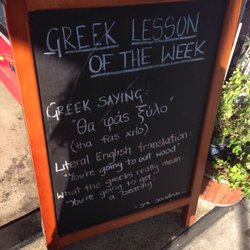 GREEK LESSON
OF THE WEEK
GREEK SAYING:
"Θα φάς ξύλο"
(tha fas xilo)
Literal English translation:
"You're going to eat wood"
What the greeks really mean:
"You're going to get
a beating"